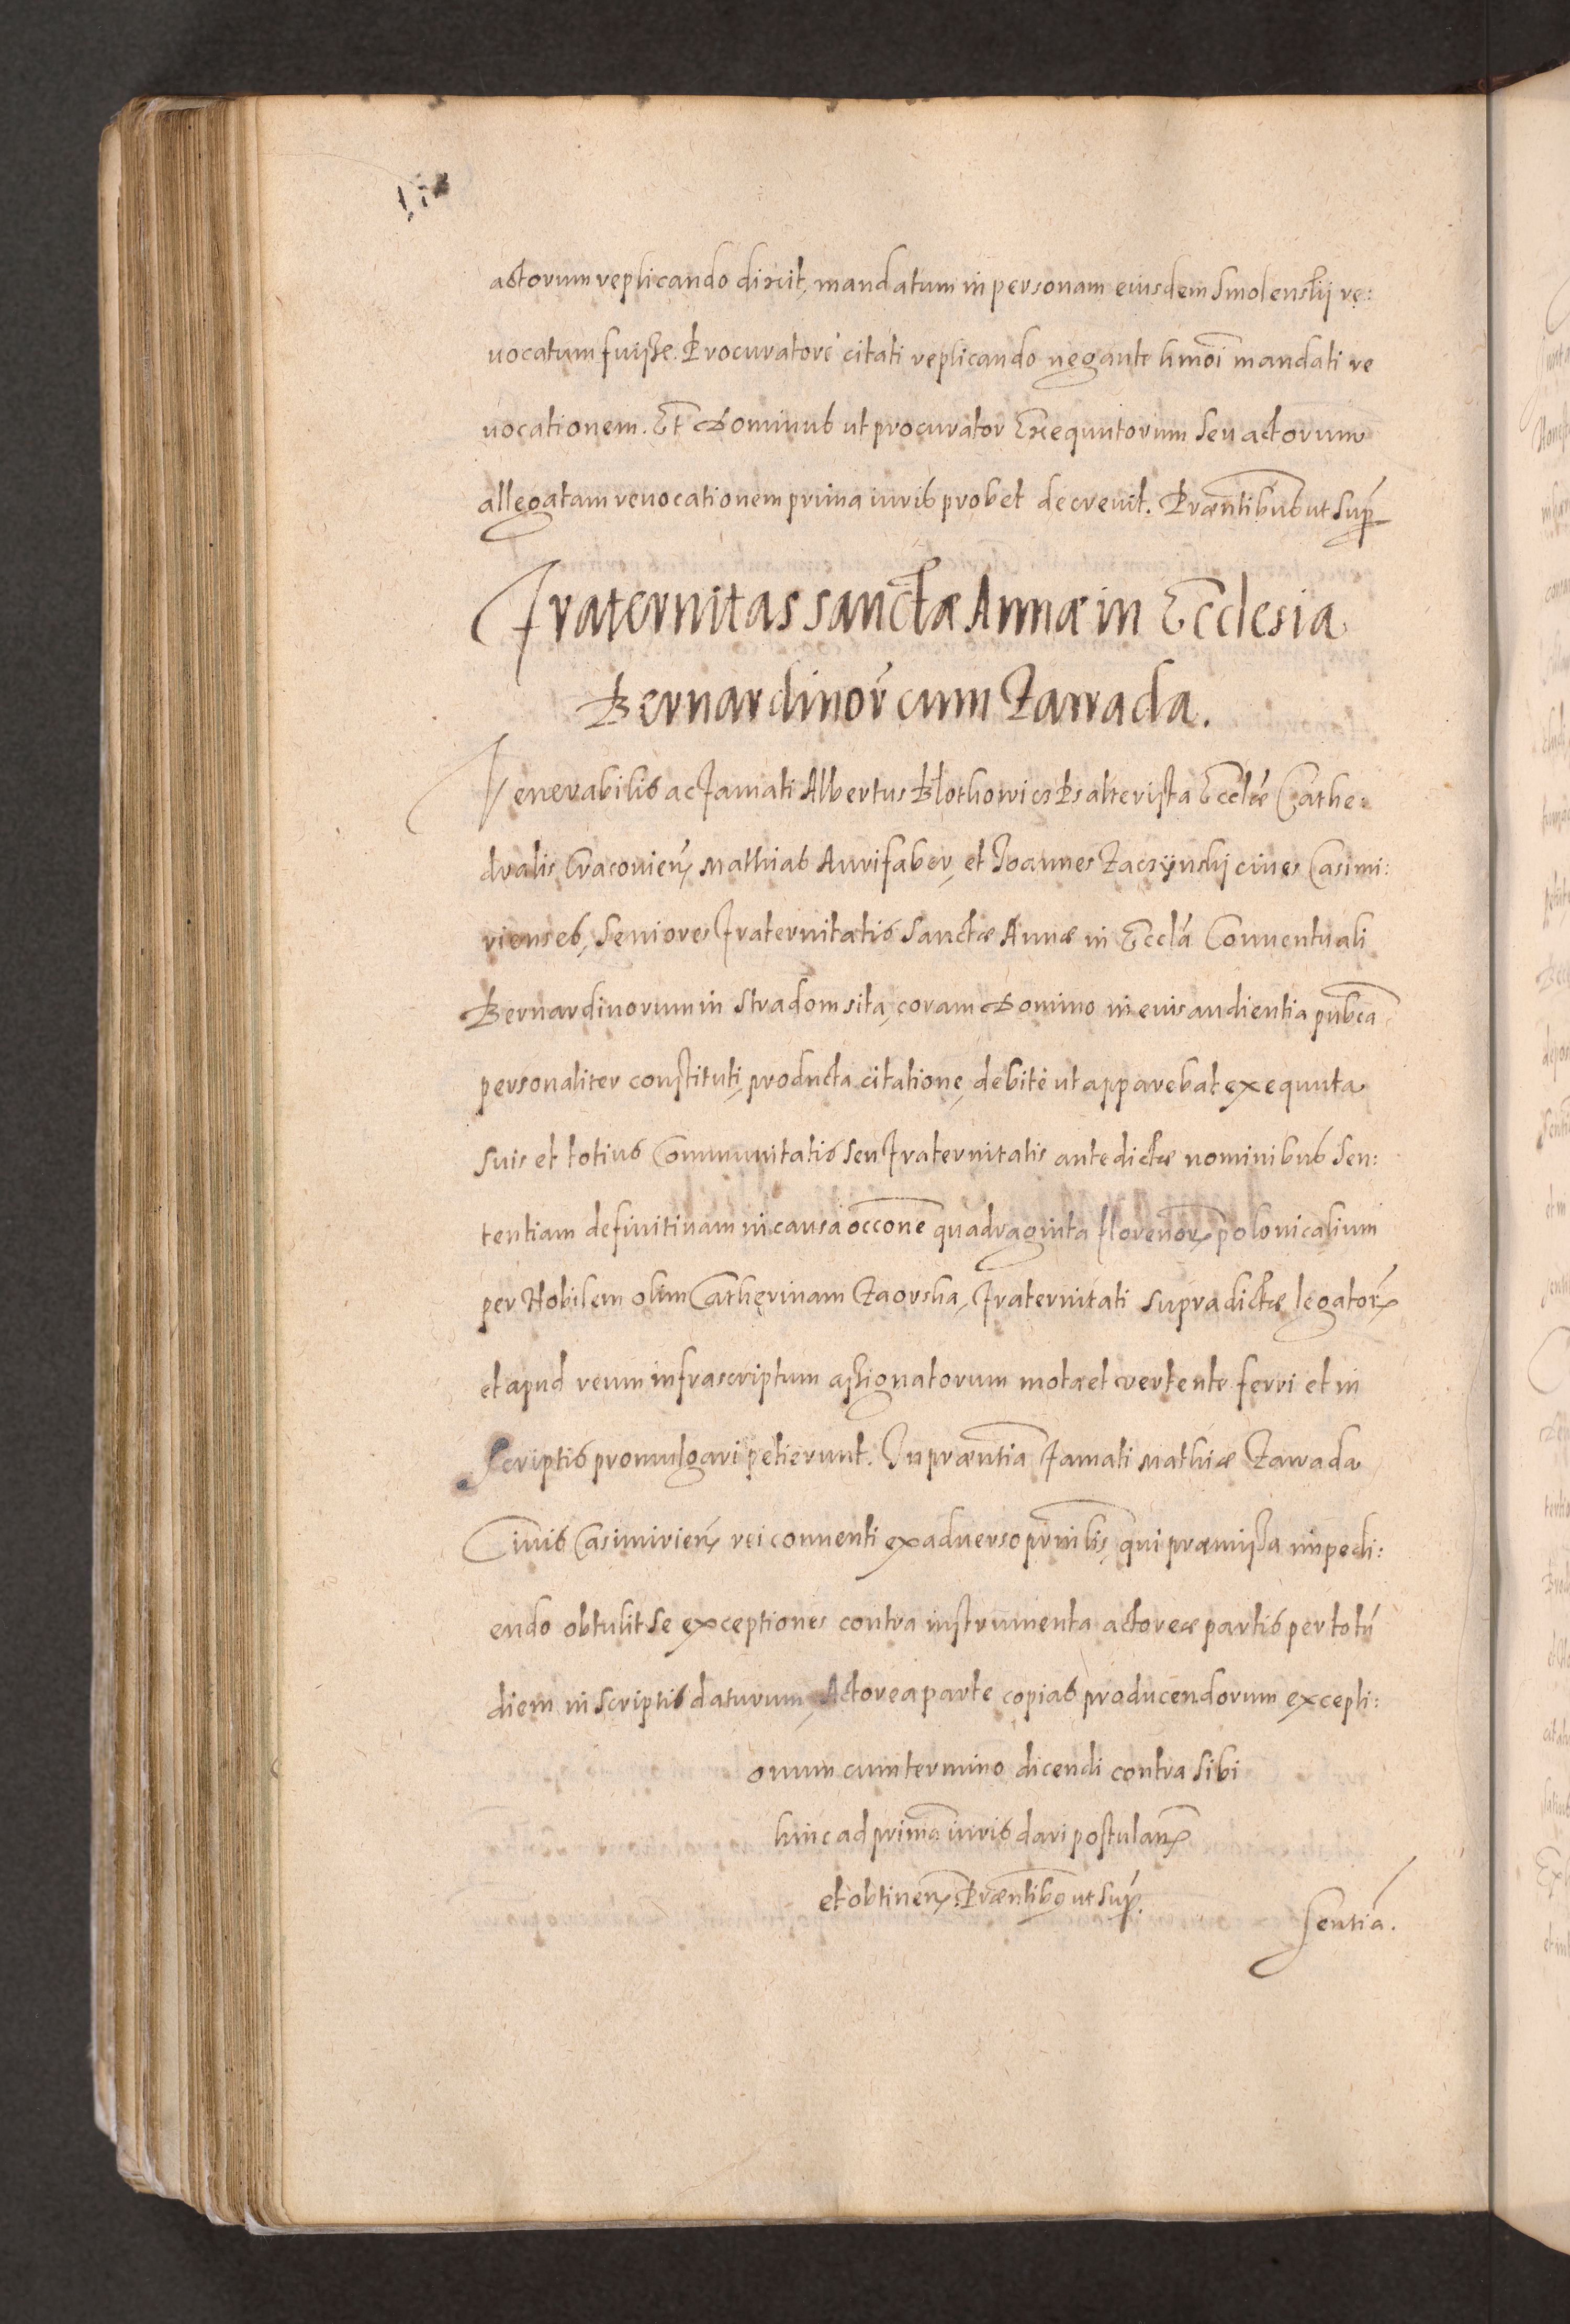 actorum replicando dixit, mandatum in personam eiusdem Smolenskij re:
uocatum fuisse. Procuratore citati replicando negante hmōi mandati re
uocationem. Et Dominus ut procurator Exequutorum seu actorum
allegatam reuocationem prima iuris probet decreuit. Præntibus ut sup̄
Fraternitas sanctæ Annæ in Ecclesia
Bernardinor̄ cum Zawada.
Venerabilis ac famati Albertus Psalterista Ecclæ Cathe:
dralis Cracovien̄ Mathias Aurifaber, et Joannes Zaczÿnskij ciues Casimi:
rienses, Seniores fraternitatis Sanctæ Annæ in Ecclā Conuentuali
Bernardinorum in Stradom sita, coram Domino in eius audientia pub̄ca
personaliter constituti, producta citatione, debitè ut apparebat exequuta
suis et totius Communitatis seu fraternitatis antedictæ nominibus Sen:
tentiam definitiuam in causa occōne quadraginta florenor̄ polonicalium
per Nobilem olim Catherinam Zaorska, fraternitati supradictæ legator̄
et apud reum infrascriptum assignatorum mota et vertente ferri et in
Scriptis promulgari petierunt. In præntia famati Mathiæ Zawada
Ciuis Casimirien̄ rei conuenti ex aduerso prnīlis, qui præmissa impedi:
endo obtulit se exceptiones contra instrumenta actoreæ partis per totū
diem in scriptis daturum, Actorea parte copias producendorum excepti:
onum cum termino dicendi contra sibi
hinc ad primā iuris dari postulan̄
et obtinen̄. Præntibus ut sup̄.
Sentiā.